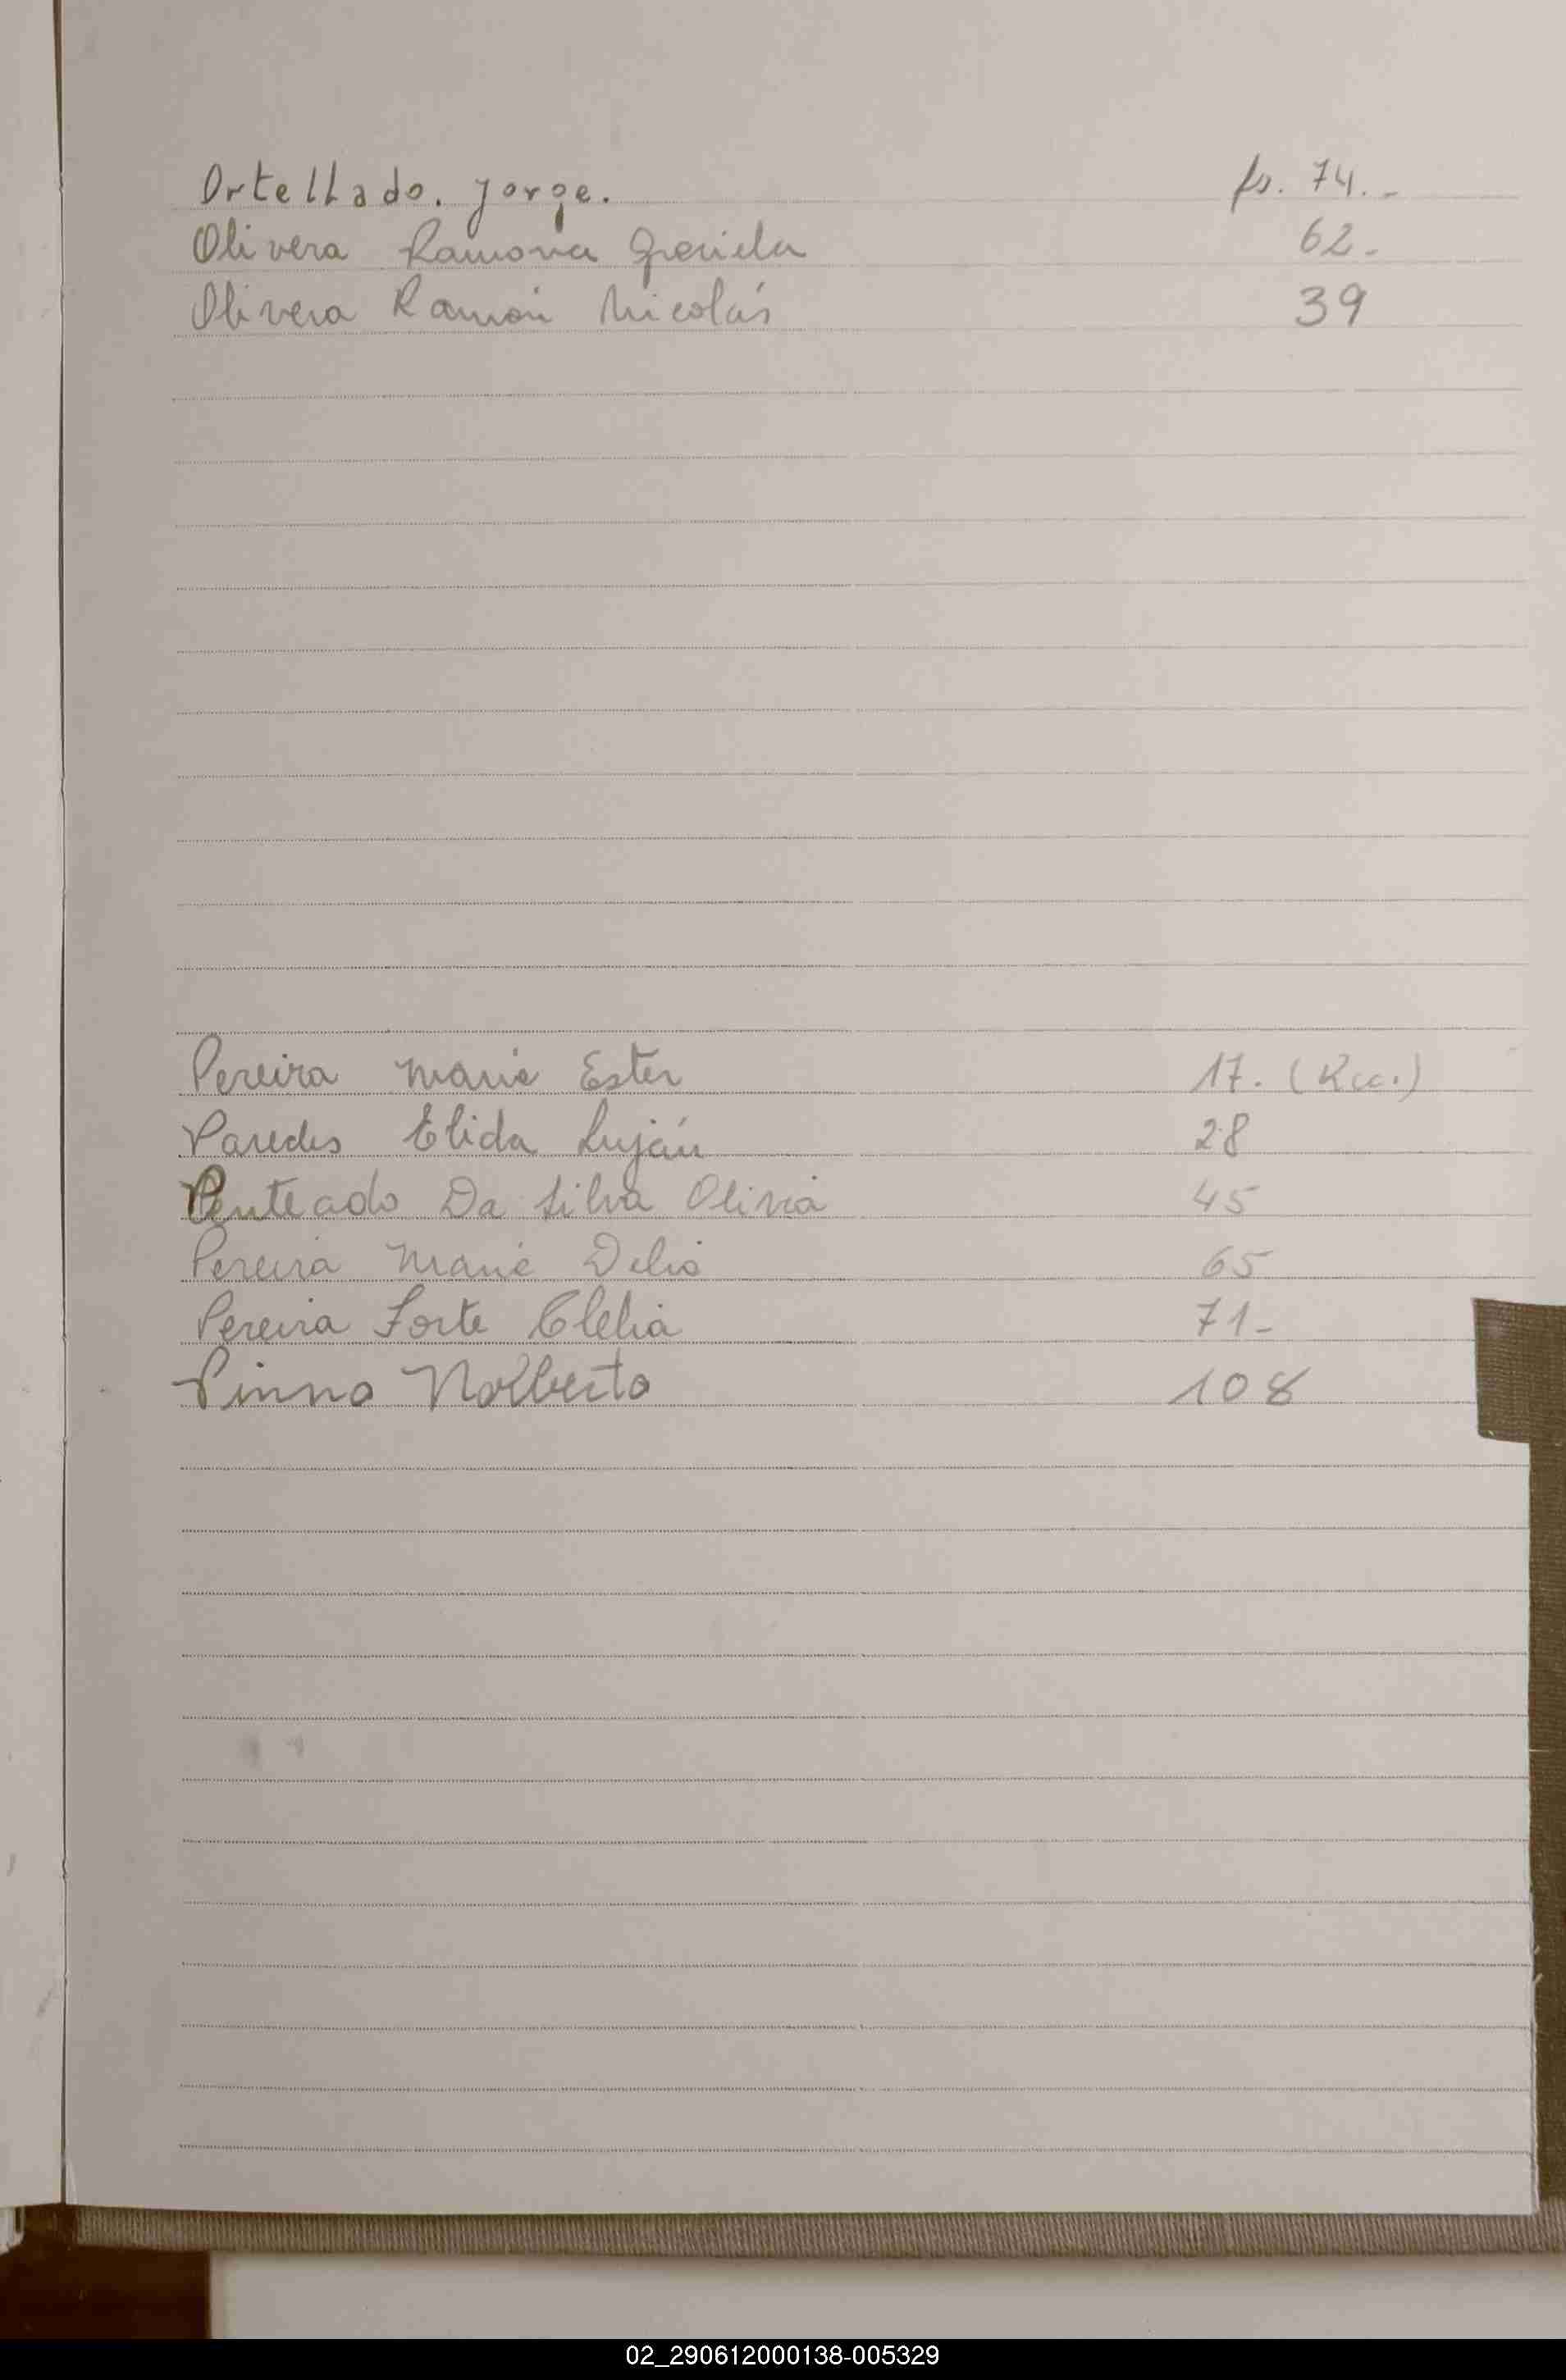 Ortellado. Jorge. fs. 74.-
Olivera Ramona Graciela 62-
Olivera Ramón Nicolás 39
Pereira Maria Ester 17. (Rec.)
Paredes Elida Luján 28
Penteado Da Silva Olivia 45
Pereira Maria Delia 65
Pereira Forte Clelia 71-
Pinno Nolberto 108
02_290612000138-005329